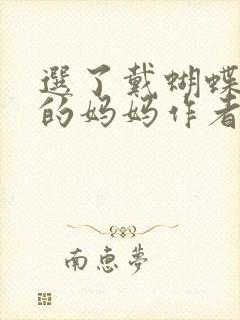 選了戴蝴蝶
的妈妈作者
南惠夢